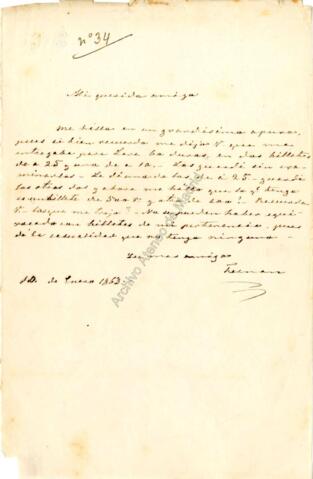 nº 34
Mi querida amiga
Me hallo en un grandísimo apuro,
pues si bien recuerdo me dijo V. que me
entregaba para Lara 60 duros, en dos billetes
de á 25 y uno de a 10. Los guardé sin exa-
minarlos. Le di uno de los de á 25 - guardé
los otros dos y ahora me hallo que lo qe tengo
es un billete de 500 r. y otro de 200! Recuerda
V. los que me trajo? No se pueden haber equi-
vocado con billetes de mi pertenencia, pues
dá la casualidad que no tengo ninguno -
Su mas amiga
Fernan
10 de Enero 1863
Archivo Alfonso de